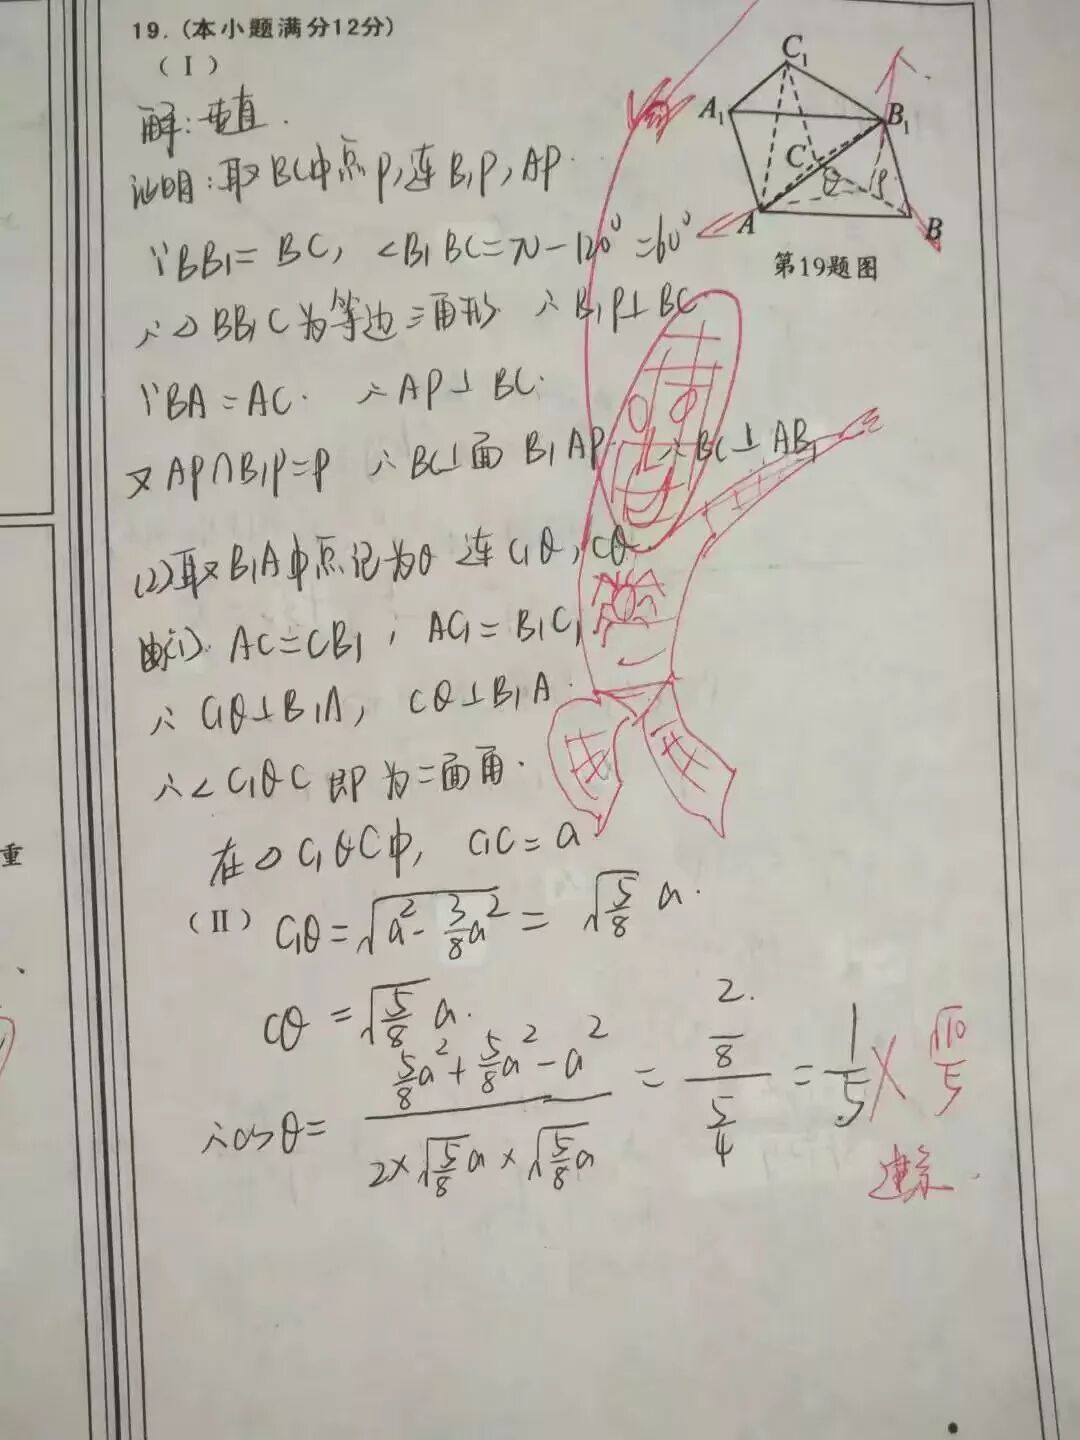 19.(本小题满分12分)
(Ⅰ)
解:垂直.
证明:取BC中点P,连B₁P,AP.
∵BB₁=BC,∠B₁BC=π-120°=60°
∴△BB₁C为等边三角形 ∴B₁P⊥BC
∵BA=AC. ∴AP⊥BC.
又AP∩B₁P=P ∴BC⊥面B₁AP. ∴BC⊥AB₁
(2)取B₁A中点记为θ 连C₁θ,Cθ
由(1). AC=CB₁, AC₁=B₁C₁
∴C₁θ⊥B₁A, Cθ⊥B₁A.
∴∠C₁θC即为二面角.
在△C₁θC中, C₁C=a
(Ⅱ) C₁θ=√(a²-3/8a²)=√(5/8)a.
Cθ=√(5/8)a.
∴cosθ=(5/8a²+5/8a²-a²)/(2×√(5/8)a×√(5/8)a)=(2/8)/(5/4)=1/5 × √10/5
建系.
C₁
A₁
B₁
C
θ
P
A
B
第19题图
重
、